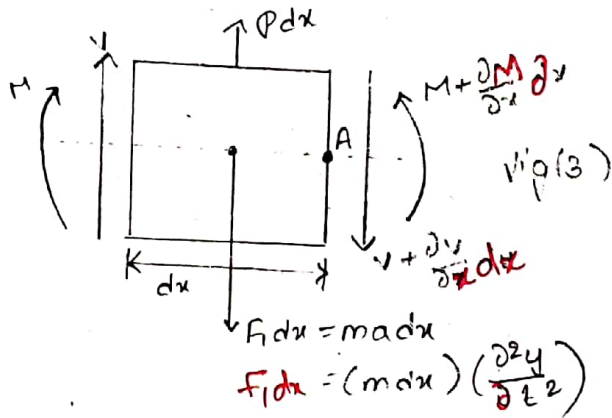 Pdx
V
M
M + ∂M/∂x ∂x
A
Fig(3)
V + ∂V/∂x dx
dx
F₁dx = madx
F₁dx = (mdx) (∂²y/∂t²)